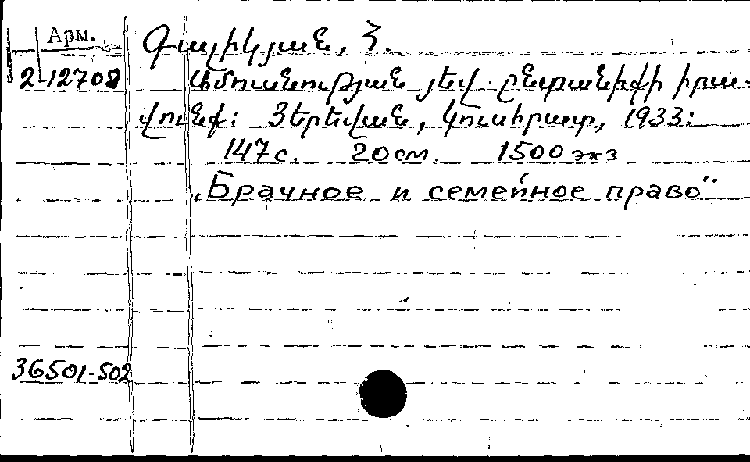 Арм.
Գալիկյան, Հ.
2-12708
Ամուսնության յեվ ընտանիքի իրա-
վունք: Յերեվան, Կուսհրատ, 1933:
147 с. 20 см. 1500 экз
„Брачное и семейное право"
36501-502